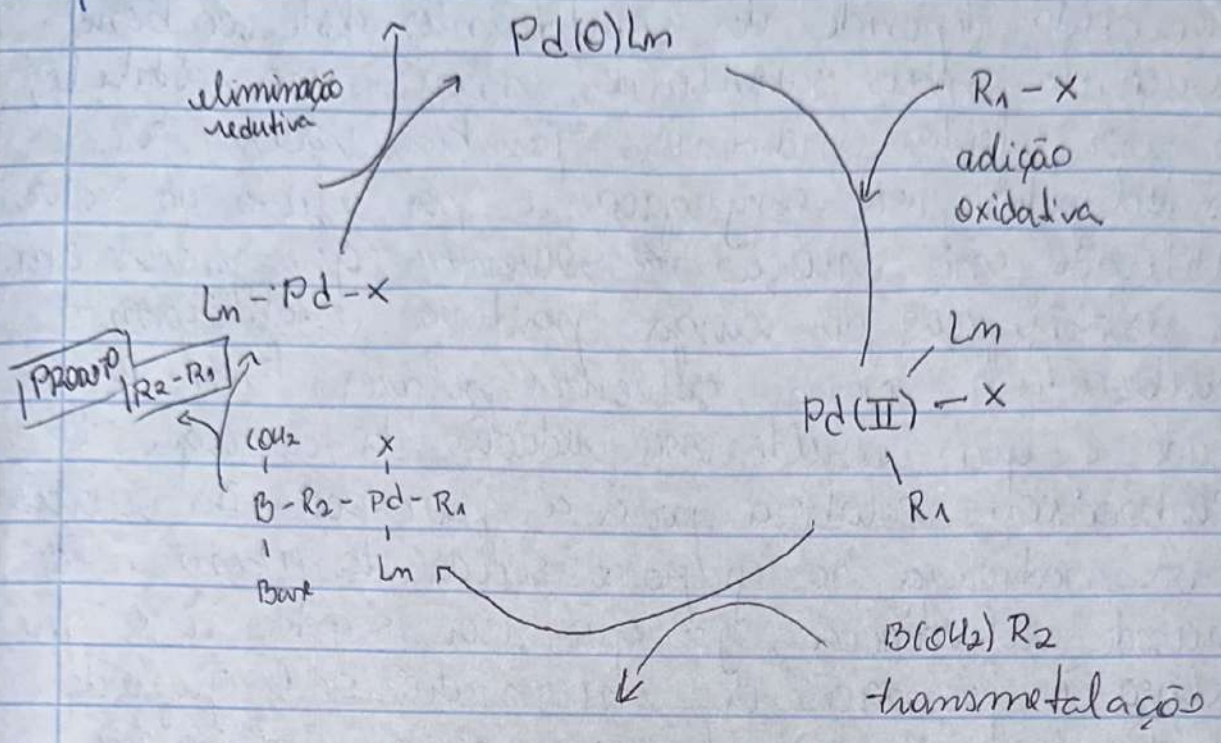 Pd(0)Ln
eliminação
redutiva
R1 - X
adição
oxidativa
Ln - Pd - X
PRODUTO
R2-R1
Ln
Pd(II) - X
R1
(OH2
X
B - R2 - Pd - R1
Ln
Base
B(OH2) R2
transmetalação